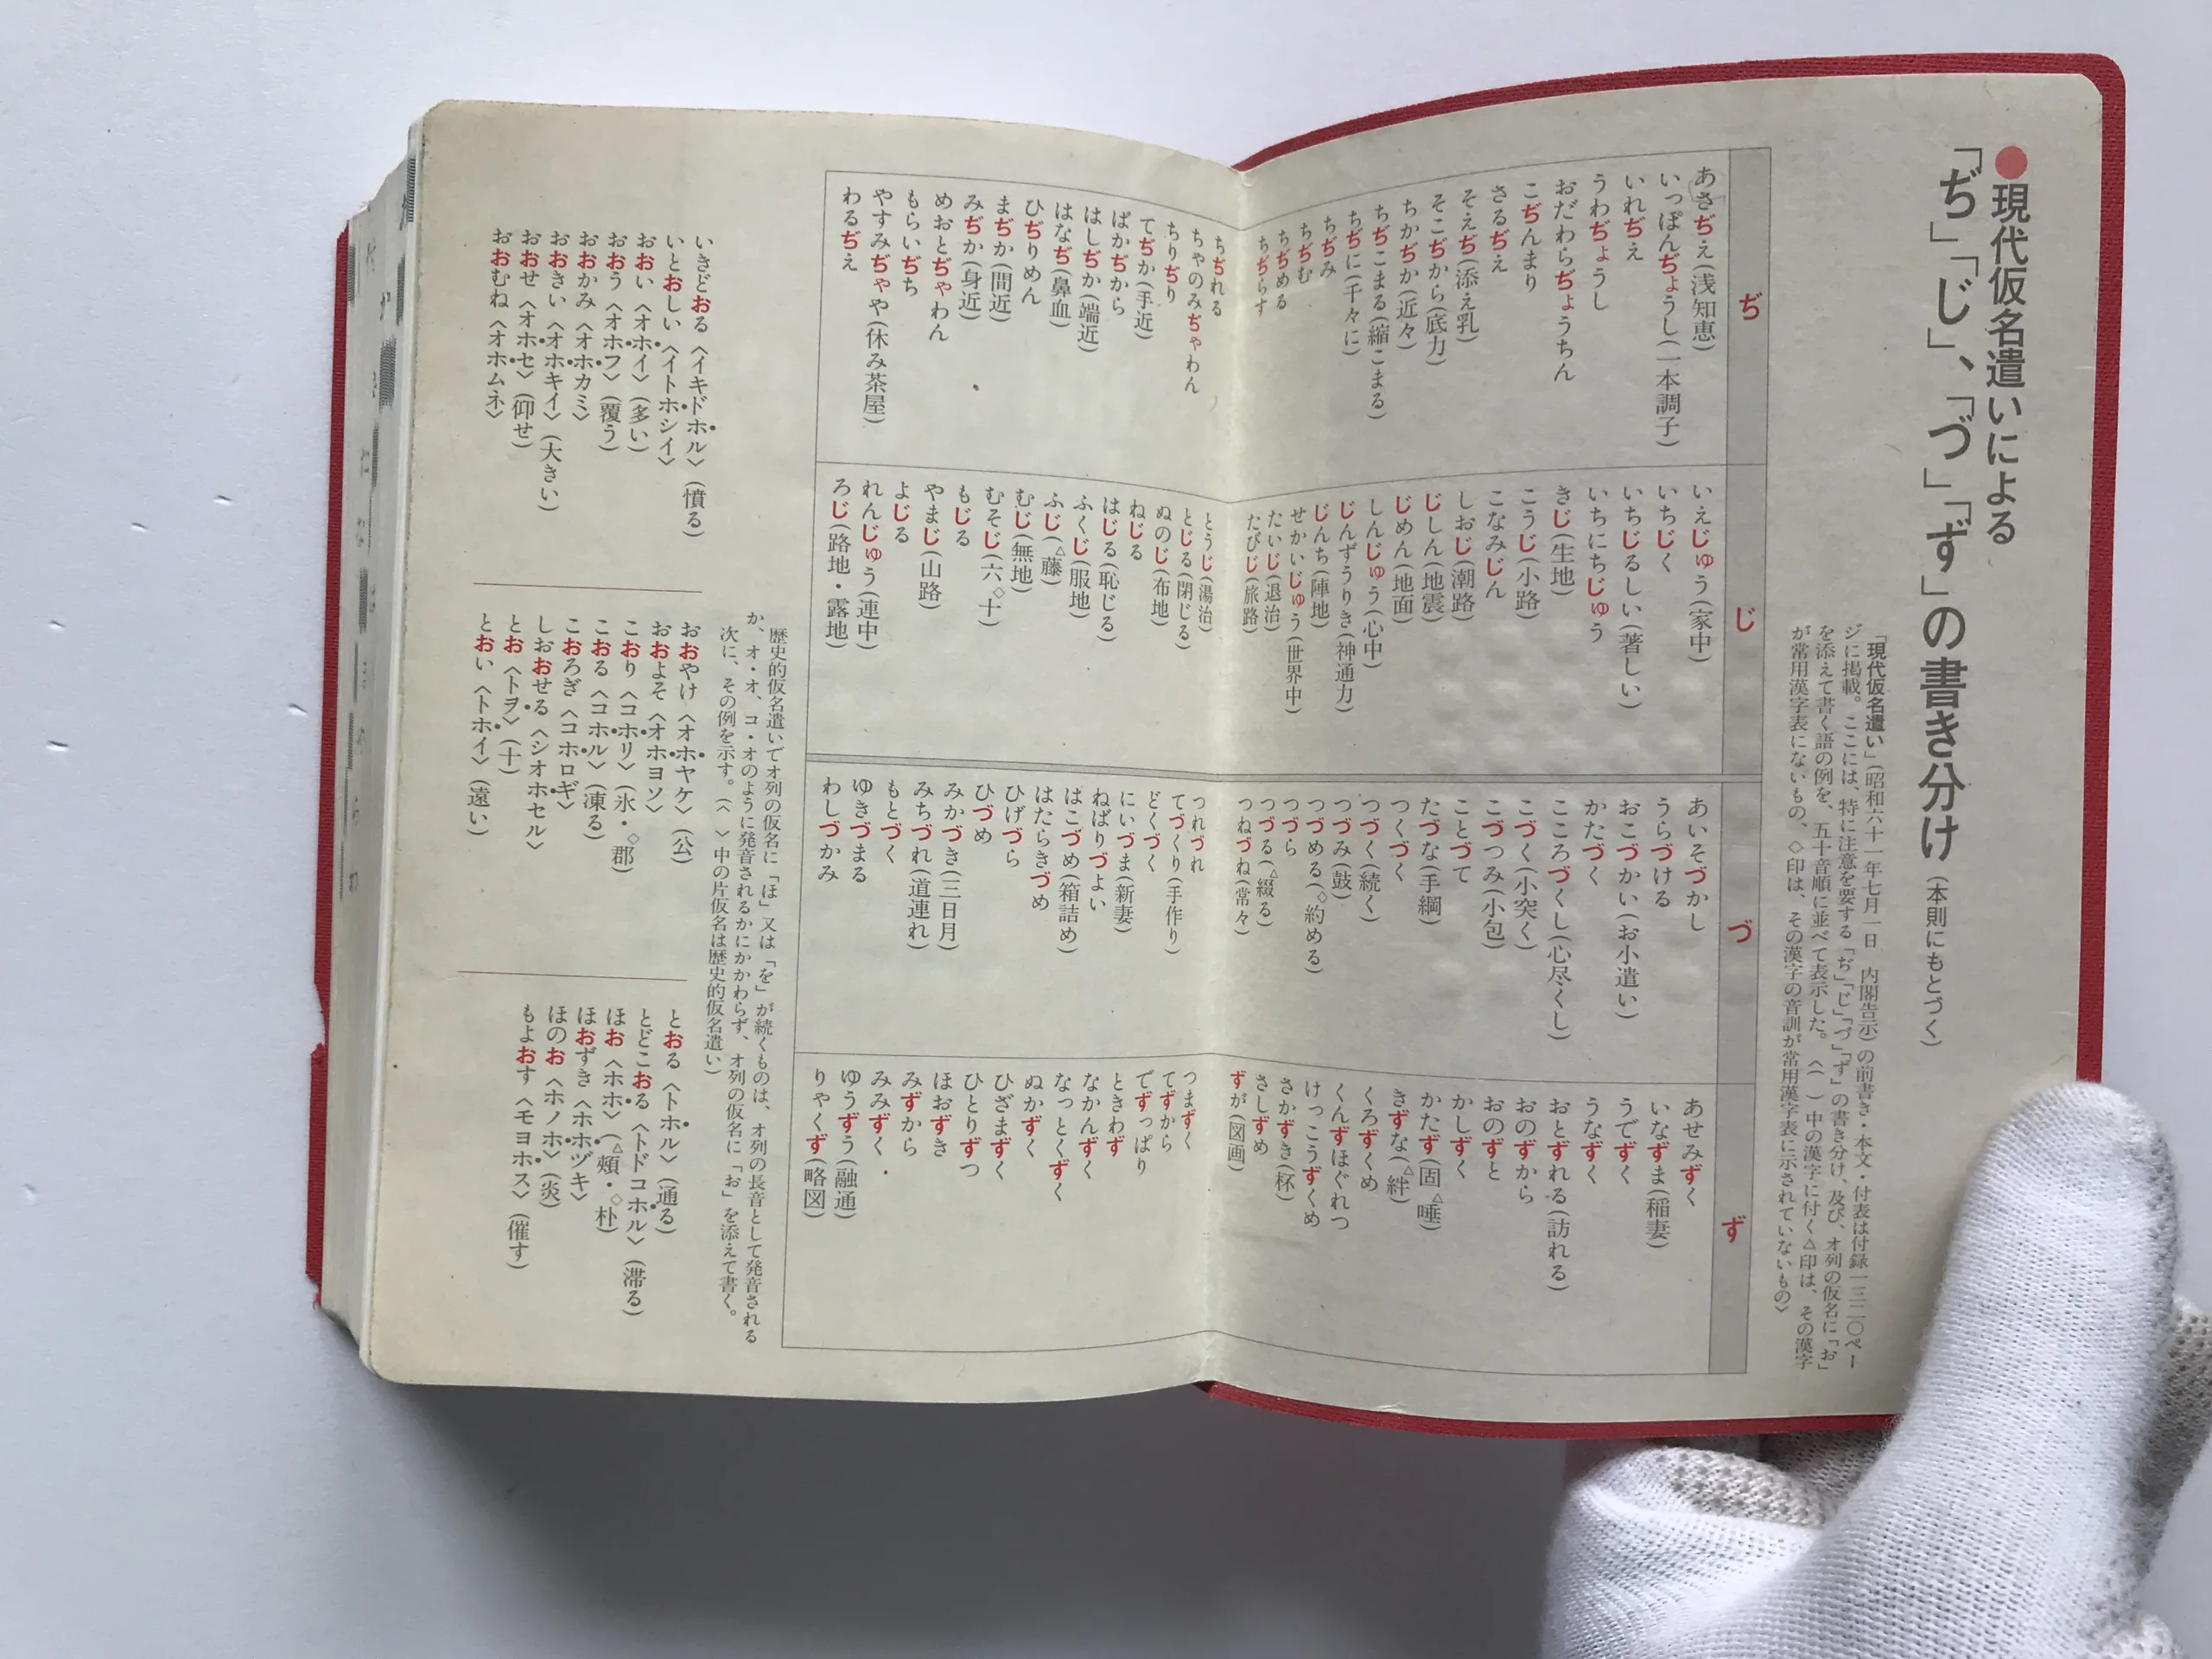 ●現代仮名遣いによる
「ぢ」「じ」、「づ」「ず」の書き分け(本則にもとづく)
「現代仮名遣い」(昭和六十一年七月一日 内閣告示)の前書き・本文・付表は付録一三二〇ペー
ジに掲載。ここには、特に注意を要する「ぢ」「じ」「づ」「ず」の書き分け、及び、オ列の仮名に「お」
を添えて書く語の例を、五十音順に並べて表示した。〈( )中の漢字に付く△印は、その漢字
が常用漢字表にないもの、◇印は、その漢字の音訓が常用漢字表に示されていないもの〉
ぢ
あさぢえ(浅知恵)
いっぽんぢょうし(一本調子)
いれぢえ
うわぢょうし
おだわらぢょうちん
こぢんまり
さるぢえ
そえぢ(添え乳)
そこぢから(底力)
ちかぢか(近々)
ちぢこまる(縮こまる)
ちぢに(千々に)
ちぢみ
ちぢむ
ちぢめる
ちぢらす
ちぢれる
ちゃのみぢゃわん
ちりぢり
てぢか(手近)
ばかぢから
はしぢか(端近)
はなぢ(鼻血)
ひぢりめん
まぢか(間近)
みぢか(身近)
めおとぢゃわん
もらいぢち
やすみぢゃや(休み茶屋)
わるぢえ
じ
いえじゅう(家中)
いちじく
いちじるしい(著しい)
いちにちじゅう
きじ(生地)
こうじ(小路)
こなみじん
しおじ(潮路)
じしん(地震)
じめん(地面)
しんじゅう(心中)
じんずうりき(神通力)
じんち(陣地)
せかいじゅう(世界中)
たいじ(退治)
たびじ(旅路)
とうじ(湯治)
とじる(閉じる)
ぬのじ(布地)
ねじる
はじる(恥じる)
ふくじ(服地)
ふじ(△藤)
むじ(無地)
むそじ(六◇十)
もじる
やまじ(山路)
よじる
れんじゅう(連中)
ろじ(路地・露地)
づ
あいそづかし
うらづける
おこづかい(お小遣い)
かたづく
こころづくし(心尽くし)
こづく(小突く)
こづつみ(小包)
ことづて
たづな(手綱)
つくづく
つづく(続く)
つづみ(鼓)
つづめる(◇約める)
つづら
つづる(△綴る)
つねづね(常々)
つれづれ
てづくり(手作り)
どくづく
にいづま(新妻)
ねばりづよい
はこづめ(箱詰め)
はたらきづめ
ひげづら
ひづめ
みかづき(三日月)
みちづれ(道連れ)
もとづく
ゆきづまる
わしづかみ
ず
あせみずく
いなずま(稲妻)
うでずく
うなずく
おとずれる(訪れる)
おのずから
おのずと
かしずく
かたず(固△唾)
きずな(△絆)
くろずくめ
くんずほぐれつ
けっこうずくめ
さかずき(杯)
さしずめ
ずが(図画)
つまずく
てずから
でずっぱり
ときわず
なっとくずく
なかんずく
ぬかずく
ひざまずく
ひとりずつ
ほおずき
みずから
みみずく
ゆうずう(融通)
りゃくず(略図)
歴史的仮名遣いでオ列の仮名に「ほ」又は「を」が続くものは、オ列の長音として発音される
か、オ・オ、コ・オのように発音されるかにかかわらず、オ列の仮名に「お」を添えて書く。
次に、その例を示す。(〈 〉中の片仮名は歴史的仮名遣い)
いきどおる〈イキドホル〉(憤る)
いとおしい〈イトホシイ〉
おおい〈オホイ〉(多い)
おおう〈オホフ〉(覆う)
おおかみ〈オホカミ〉
おおきい〈オホキイ〉(大きい)
おおせ〈オホセ〉(仰せ)
おおむね〈オホムネ〉
おおやけ〈オホヤケ〉(公)
おおよそ〈オホヨソ〉
こおり〈コホリ〉(氷・◇郡)
こおる〈コホル〉(凍る)
こおろぎ〈コホロギ〉
しおおせる〈シオホセル〉
とお〈トヲ〉(十)
とおい〈トホイ〉(遠い)
とおる〈トホル〉(通る)
とどこおる〈トドコホル〉(滞る)
ほお〈ホホ〉(△頰・◇朴)
ほおずき〈ホホヅキ〉
ほのお〈ホノホ〉(炎)
もよおす〈モヨホス〉(催す)